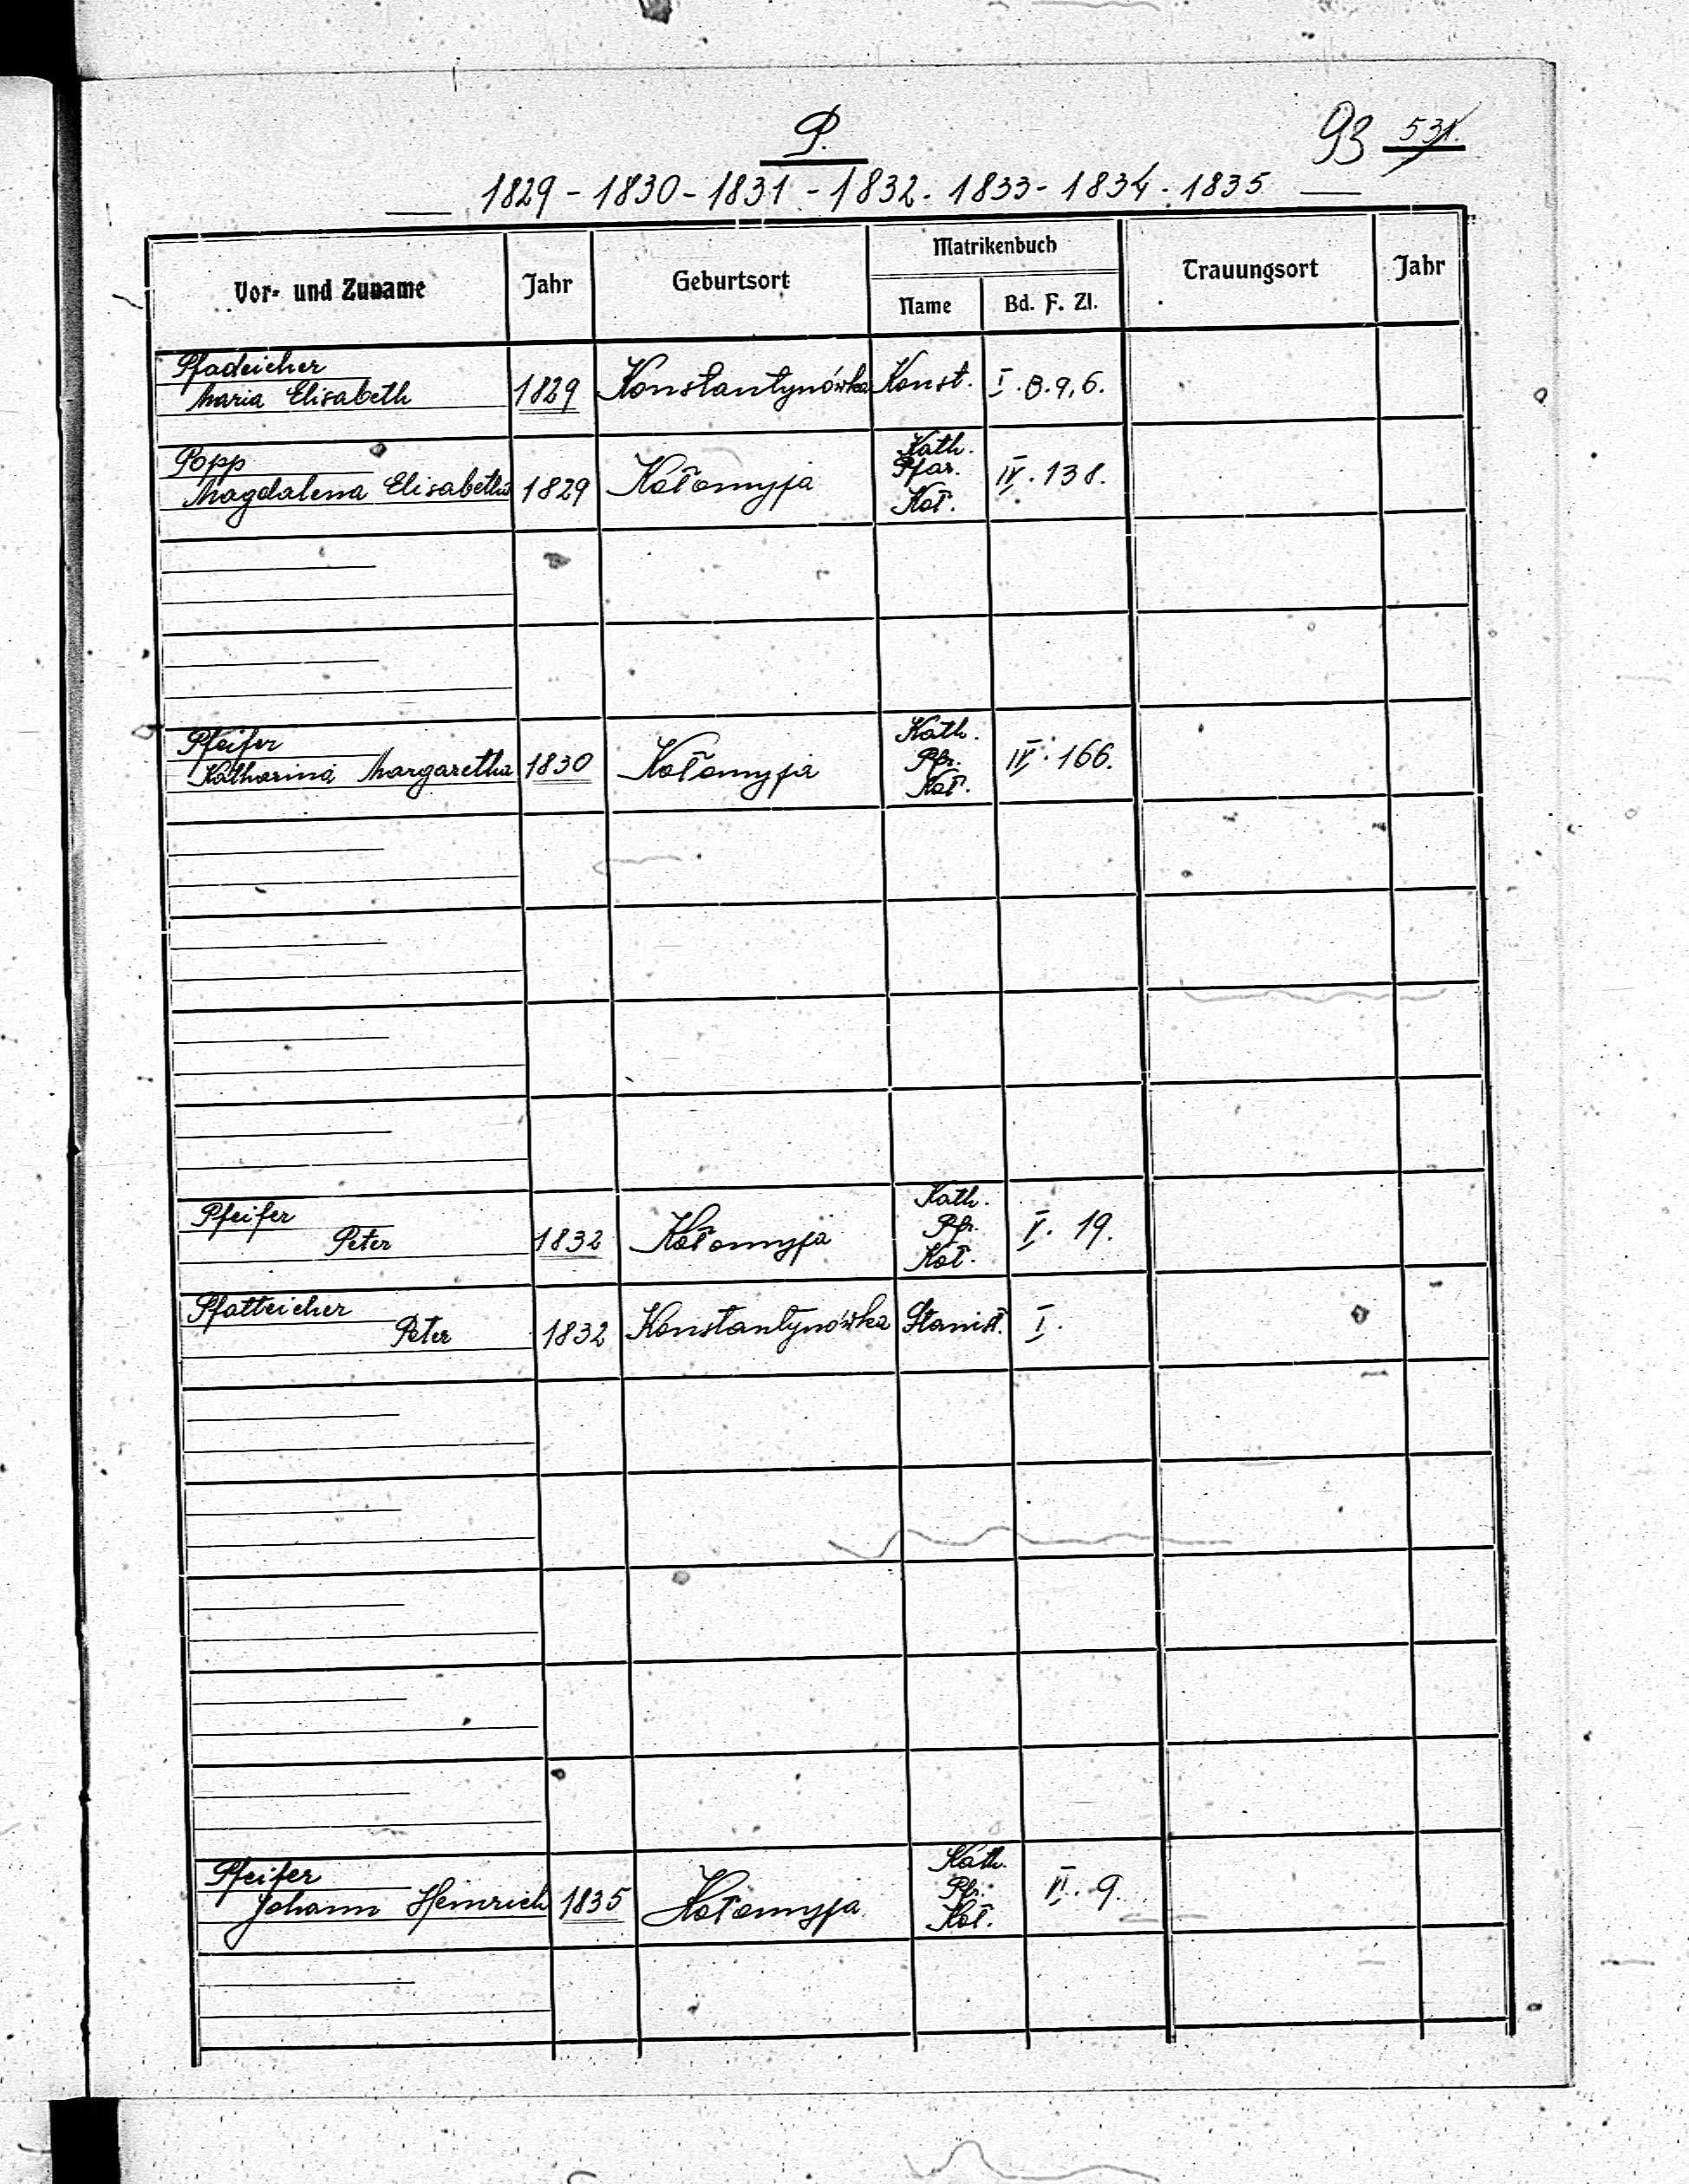 P.
93 531.
1829 - 1830 - 1831 - 1832. 1833 - 1834. 1835
Vor- und Zuname Jahr Geburtsort Matrikenbuch Trauungsort Jahr
Name Bd. F. Zl.
Pfadeicher
Maria Elisabeth 1829 Konstantynówka Konst. I. B. 9, 6.
Popp
Magdalena Elisabetha 1829 Kołomyja Kath. Pfar. Koł. IV. 138.
Pfeifer
Katharina Margaretha 1830 Kołomyja Kath. Pfr. Koł. IV. 166.
Pfeifer
Peter 1832 Kołomyja Kath. Pfr. Koł. V. 19.
Pfatteicher
Peter 1832 Konstantynówka Stanisł. I.
Pfeifer
Johann Heinrich 1835 Kołomyja Kath. Pfr. Koł. VI. 9.